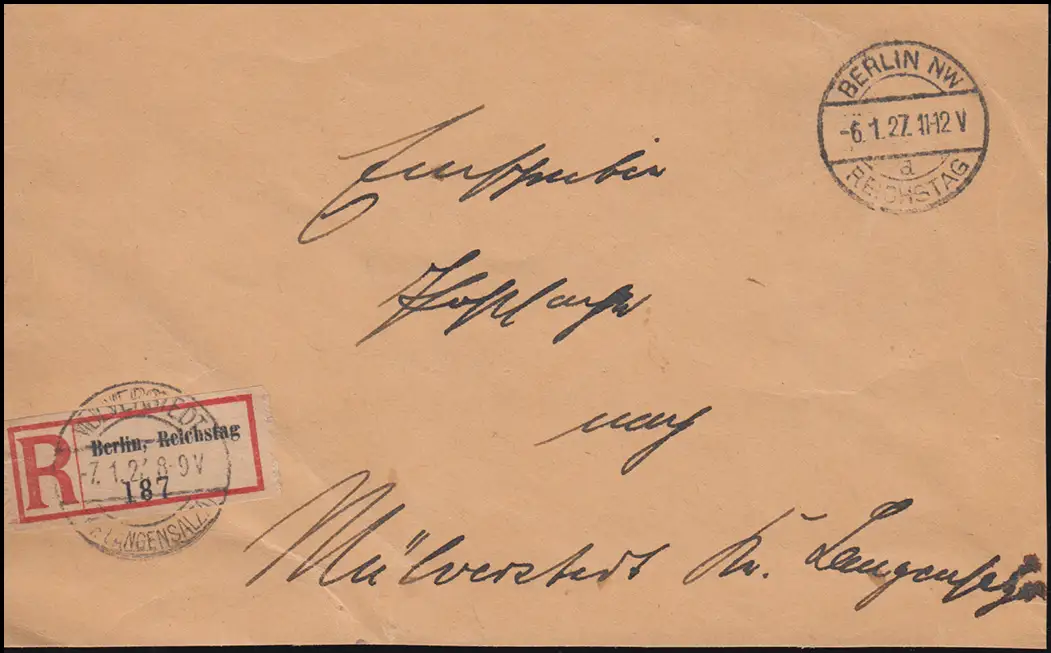 BERLIN NW
-6.1.27. 11-12 V
a
REICHSTAG
Postlagernd
nach
Mülverstedt Kr. Langensalza
MÜLVERSTEDT
R Berlin, Reichstag
-7.1.27 8-9 V
187
LANGENSALZA